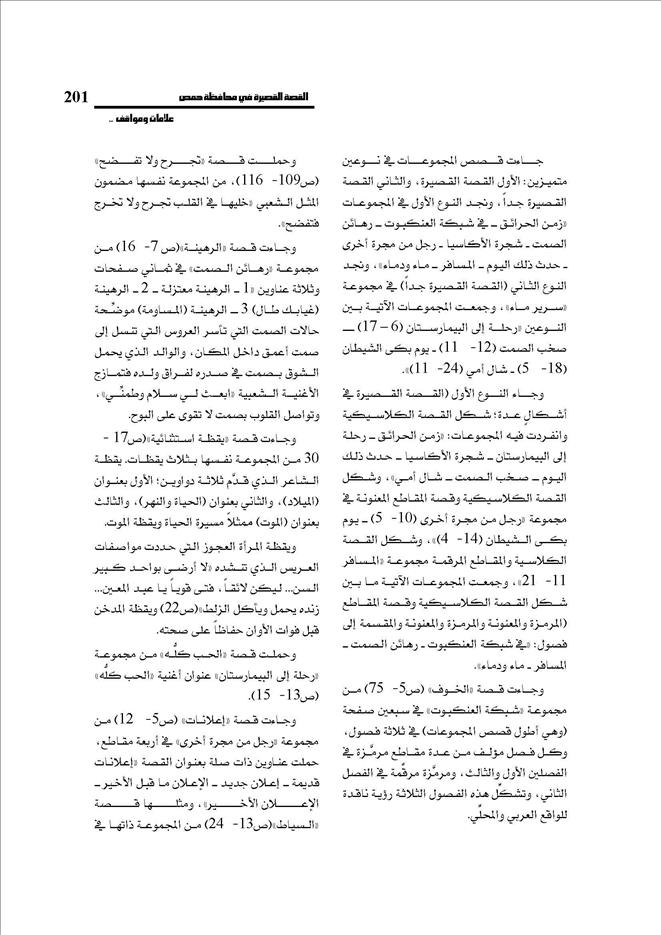 القصة القصيرة في محافظة حمص 201
علامات ومواقف ..
جـاءت قـصص المجموعـات في نـوعين
متميـزين: الأول القـصة القـصيرة، والثـاني القـصة
القـصيرة جـداً، ونجـد النـوع الأول في المجموعـات
«زمـن الحرائـق ــ في شـبكة العنكبـوت ــ رهـائن
الصمت ـ شجرة الأكاسيا ـ رجل من مجرة أخرى
ـ حدث ذلك اليـوم ــ المسـافر ــ مـاء ودمـاء»، ونجـد
النـوع الثـاني (القـصة القـصيرة جـداً) في مجموعـة
«سـرير مـاء»، وجمعـت المجموعـات الآتيـة بـين
النـوعين «رحلـة إلى البيمارسـتان (6 – 17) ــ
صخب الصمت (12- 11) ـ يوم بكى الشيطان
(18- 5) ـ شال أمي (24- 11)».
وجـاء النـوع الأول (القـصة القـصيرة في
أشـكال عـدة؛ شـكل القـصة الكلاسـيكية
وانفـردت فيـه المجموعـات: «زمـن الحرائـق ــ رحلـة
إلى البيمارستان ــ شـجرة الأكاسـيا ــ حـدث ذلـك
اليـوم ــ صـخب الـصمت ــ شـال أمـي»، وشـكل
القـصة الكلاسـيكية وقصـة المقـاطع المعنونـة في
مجموعـة «رجل مـن مجـرة أخـرى (10- 5) ــ يـوم
بكـى الـشيطان (14- 4)»، وشـكل القـصة
الكلاسـية والمقـاطع المرقمـة مجموعـة «المـسافر
11- 21»، وجمعـت المجموعـات الآتيـة مـا بـين
شـكل القـصة الكلاسـيكية وقـصة المقـاطع
(المرمـزة والمعنونـة والمرمـزة والمعنونـة والمقـسمة إلى
فصول: «في شبكة العنكبوت ـ رهـائن الصمت ــ
المسـافر ـ ماء ودماء».
وجـاءت قـصة «الخـوف» (ص5- 75) مـن
مجموعة «شبكة العنكبوت» في سبعين صفحة
(وهي أطول قصص المجموعات) في ثلاثة فصول،
وكـل فـصل مؤلـف مـن عـدة مقـاطع مرمَّـزة في
الفصلين الأول والثالث، ومرمّزة مرقّمة في الفصل
الثاني، وتشكّل هذه الفصول الثلاثة رؤيـة ناقدة
للواقع العربي والمحلّي.
وحملـت قـصة «تجـرح ولا تفـضح»
(ص109- 116)، من المجموعة نفسها مـضمون
المثـل الـشعبي «خليهـا في القلـب تجـرح ولا تخـرج
فتفضح».
وجـاءت قـصة «الرهينـة»(ص 7- 16) مـن
مجموعـة «رهـائن الـصمت» في ثمـاني صـفحات
وثلاثة عناوين «1 ــ الرهينـة معتزلـة ــ 2 ــ الرهينـة
(غيابـك طـال) 3 ــ الرهينـة (المـساومة) موضّـحة
حـالات الصمت التي تـأسر العروس التـي تنـسل إلى
صـمت أعمـق داخـل المكـان، والوالـد الـذي يحمـل
الـشوق بـصمت في صـدره لفـراق ولـده فتمـازج
الأغنيـة الـشعبية «ابعـث لـي سـلام وطمنّـي»،
وتواصل القلوب بصمت لا تقوى على البوح.
وجـاءت قـصة «يقظـة اسـتثنائية»(ص17 -
30 مـن المجموعـة نفـسها بـثلاث يقظـات. يقظـة
الـشاعر الـذي قـدَّم ثلاثـة دواويـن؛ الأول بعنـوان
(الميلاد)، والثاني بعنوان (الحياة والنهر)، والثالث
بعنوان (الموت) ممثلاً مسيرة الحياة ويقظة الموت.
ويقظـة المرأة العجوز التي حددت مواصفات
العـريس الـذي تنـشده «لا أرضـى بواحـد كـبير
الـسن... ليكـن لائقـاً، فتـى قويـاً يـا عبـد المعـين...
زنده يحمل ويأكل الزلط»(ص22) ويقظة المدخن
قبل فوات الأوان حفاظاً على صحته.
وحملـت قـصة «الحـب كلُّـه» مـن مجموعـة
«رحلة إلى البيمارستان» عنوان أغنية «الحب كلّه»
(ص13- 15).
وجـاءت قـصة «إعلانـات» (ص5- 12) مـن
مجموعة «رجل من مجرة أخرى» في أربعة مقـاطع،
حملت عناوين ذات صلة بعنوان القصة «إعلانات
قديمة ــ إعـلان جديـد ــ الإعـلان مـا قبـل الأخيـر ــ
الإعـلان الأخـير»، ومثلـها قـصة
«الـسياط»(ص13- 24) مـن المجموعـة ذاتهـا في